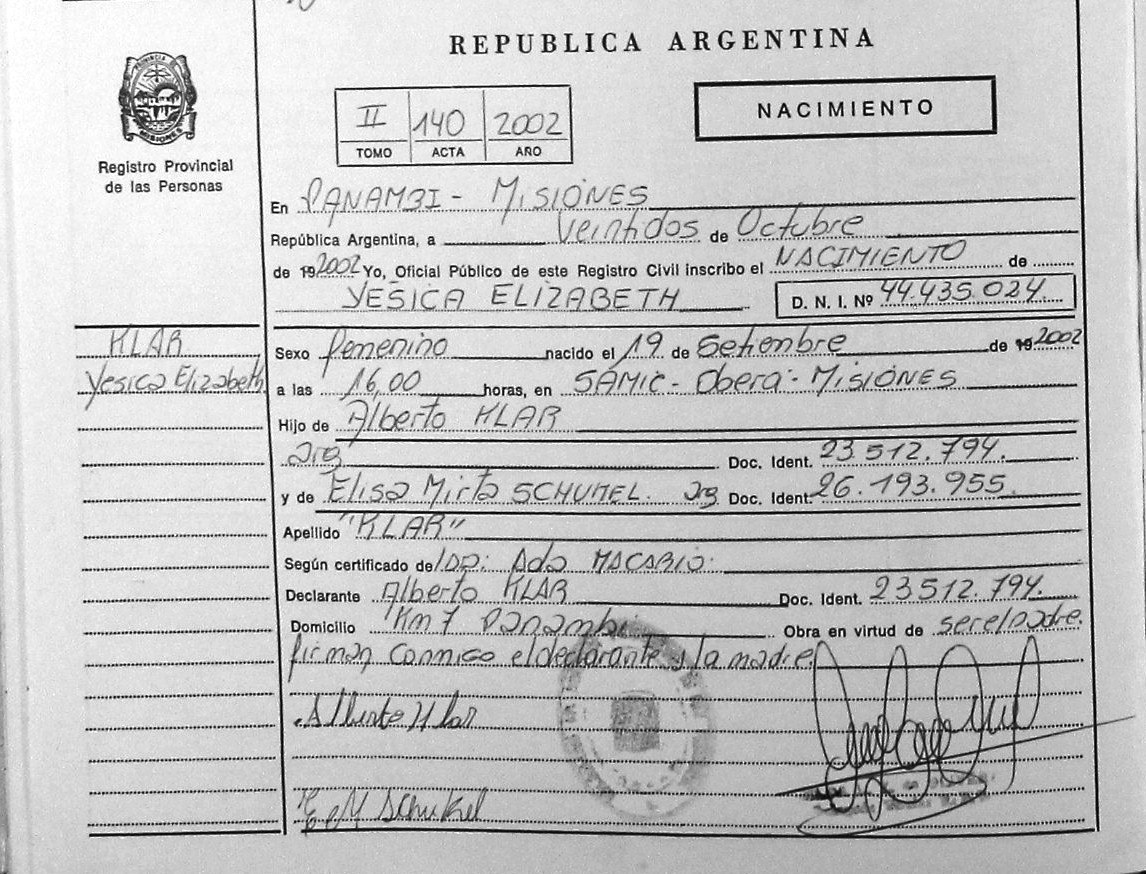 REPUBLICA ARGENTINA
PROVINCIA DE MISIONES
Registro Provincial
de las Personas
II 140 2002
TOMO ACTA AÑO
NACIMIENTO
En PANAMBI - MISIONES
República Argentina, a Veintidos de Octubre
de 192002 Yo, Oficial Público de este Registro Civil inscribo el NACIMIENTO de
YESICA ELIZABETH D. N. I. Nº 44.435.024
KLAR
Yesica Elizabeth
Sexo femenino nacido el 19 de Setiembre de 192002
a las 16,00 horas, en SAMIC - Oberá - MISIONES
Hijo de Alberto KLAR
arg Doc. Ident. 23.512.794.
y de Elisa Mirta SCHUMEL. arg Doc. Ident. 26.193.955.
Apellido "KLAR"
Según certificado de Ada MACARIO.
Declarante Alberto KLAR Doc. Ident. 23512.794.
Domicilio Km 7 Panambi Obra en virtud de ser el padre.
firman conmigo el declarante y la madre.
Alberto Klar
E M Schukel